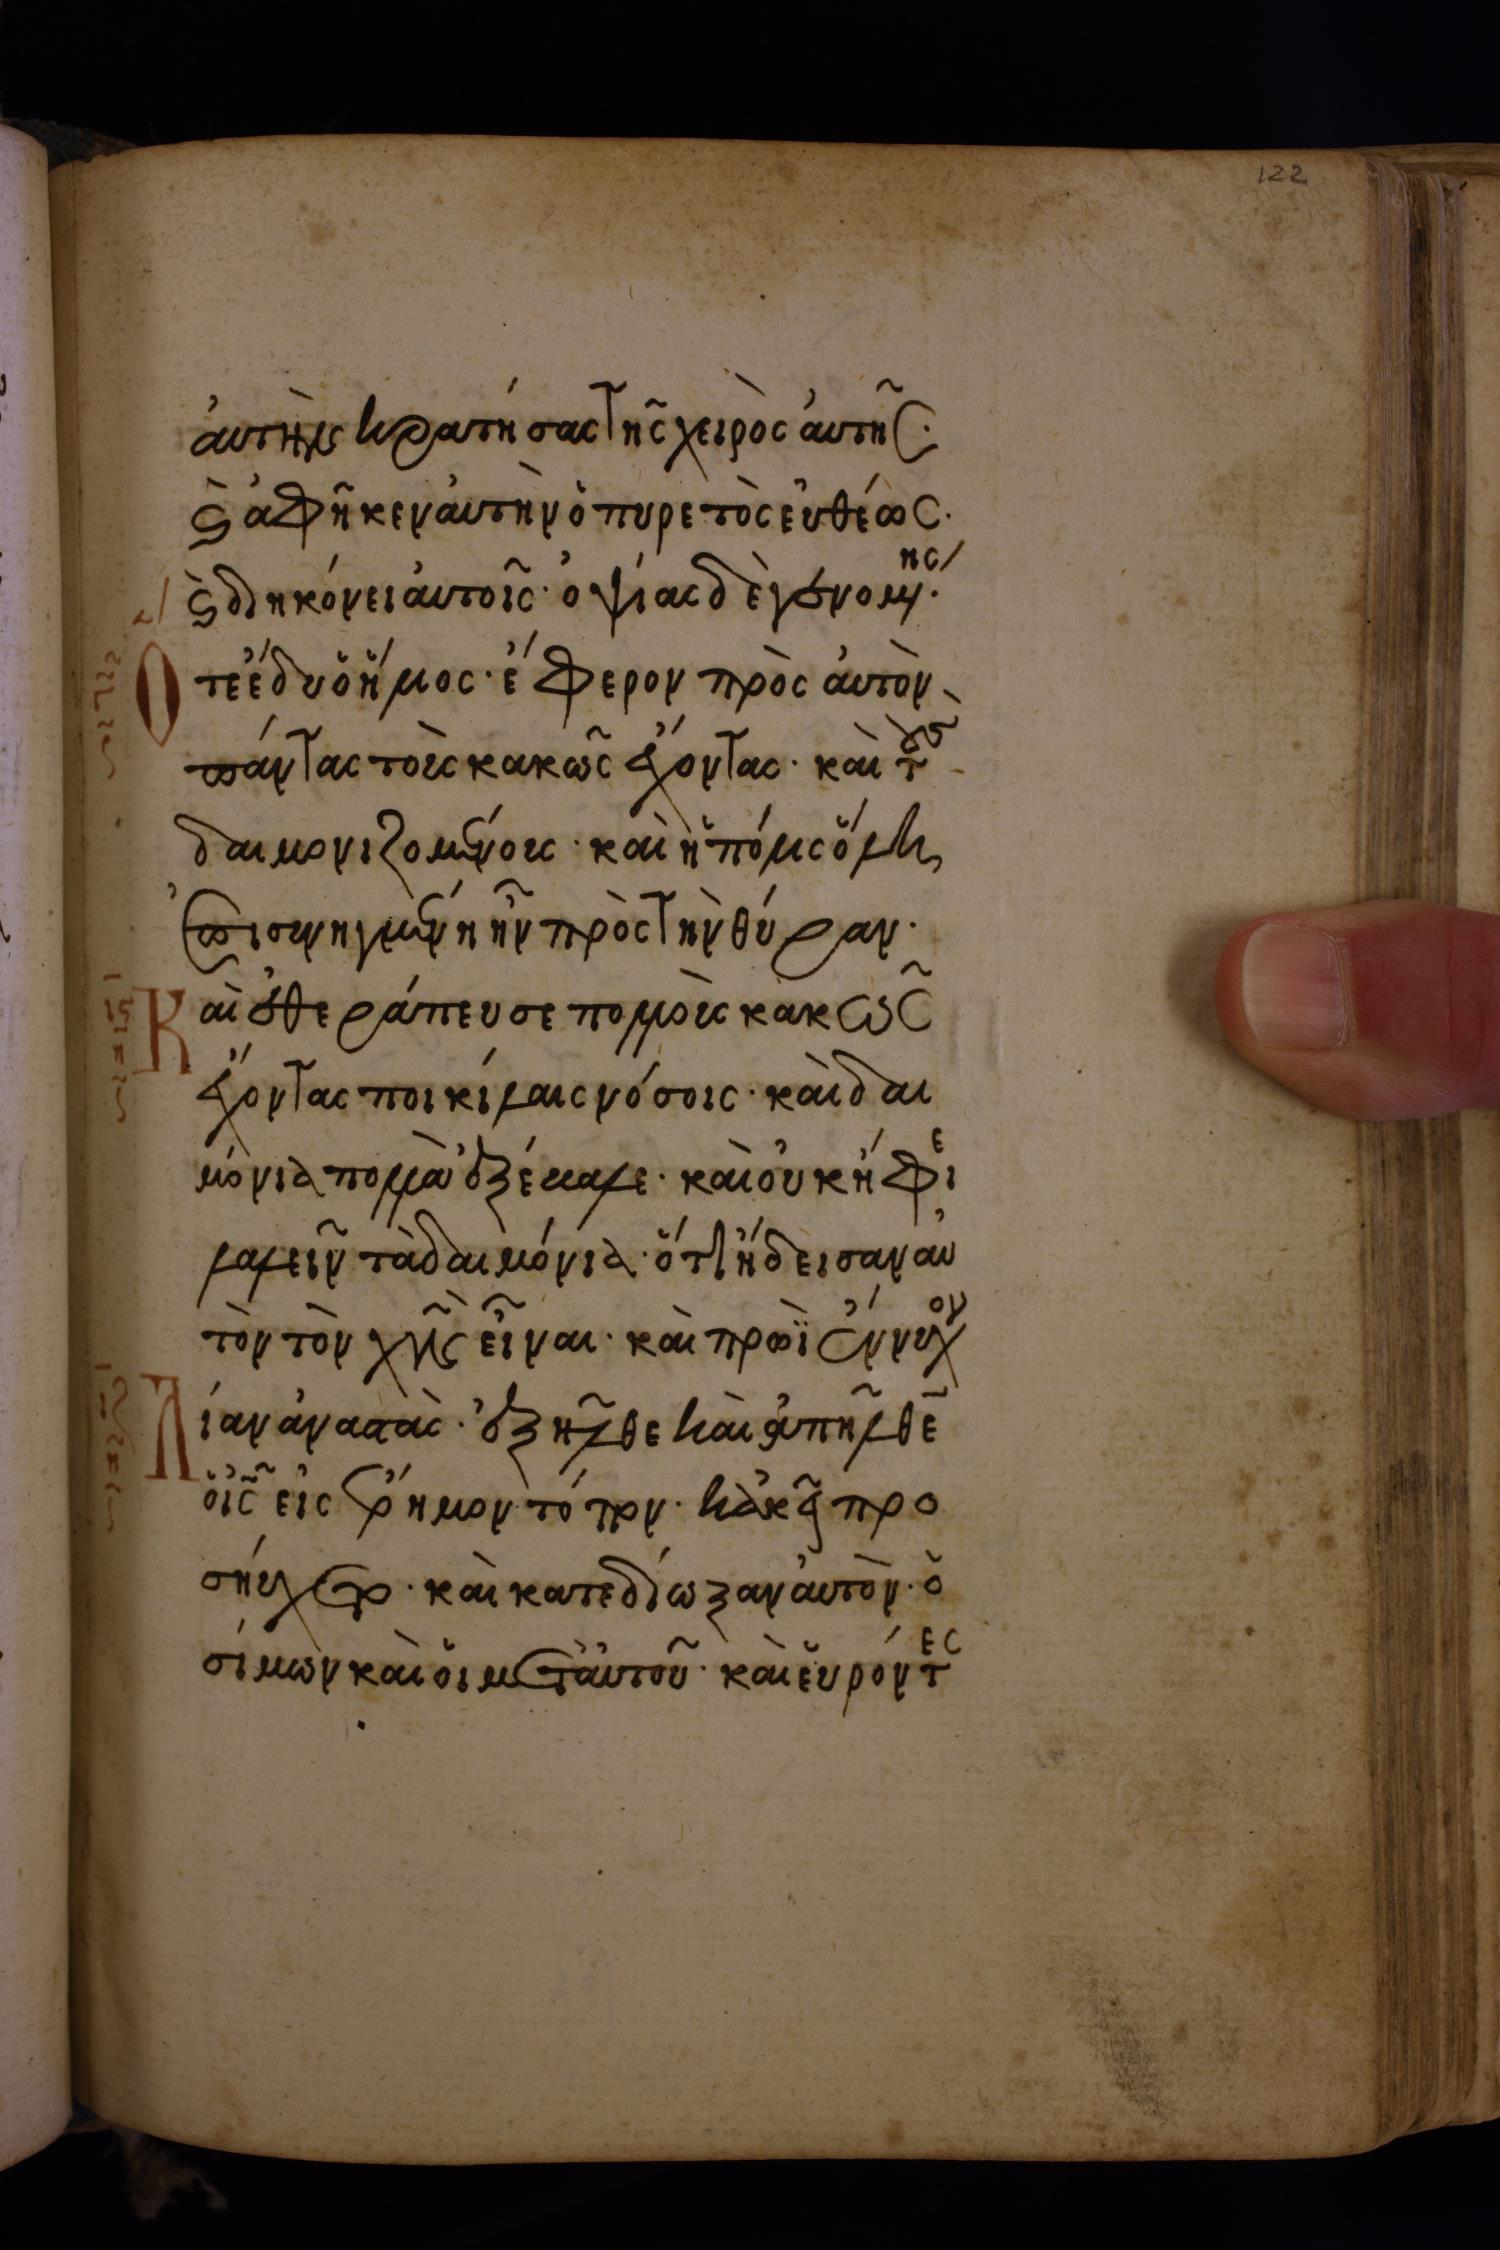 122
ἀυτὴν κρατήσας τῆς χειρὸς ἀυτῆς·
ϗ̀ ἀφῆκεν ἀυτὴν ὁ πυρετὸς ἐυθέως·
ϗ̀ διηκόνει ἀυτοῖς· ὀψίας δὲ γενομένης·
Ὁτε ἔδυ ὁ ἥλιος· ἔφερον πρὸς ἀυτὸν
πάντας τοὺς κακῶς ἔχοντας· καὶ τοὺς
δαιμονιζομένους· καὶ ἡ πόλις ὅλη
ἐπισυνηγμένη ἦν πρὸς τὴν θύραν·
Καὶ ἐθεράπευσε πολλοὺς κακῶς
ἔχοντας ποικίλαις νόσοις· καὶ δαι
μόνια πολλὰ ἐξέβαλε· καὶ οὐκ ἤφιε
λαλεῖν τὰ δαιμόνια· ὅτι ἤδεισαν αὐ
τὸν τὸν χ̅ν̅ εἶναι· καὶ πρωῒ ἔννυχον
Λίαν ἀναστὰς· ἐξῆλθε καὶ ἀπῆλθε
ὁ ι̅ς̅ εἰς ἔρημον τόπον· κἀκεῖ προ
σήυχετο· καὶ κατεδίωξαν ἀυτὸν· ὁ
σίμων καὶ ὁι μετ ἀυτοῦ· καὶ ἑυρόντες